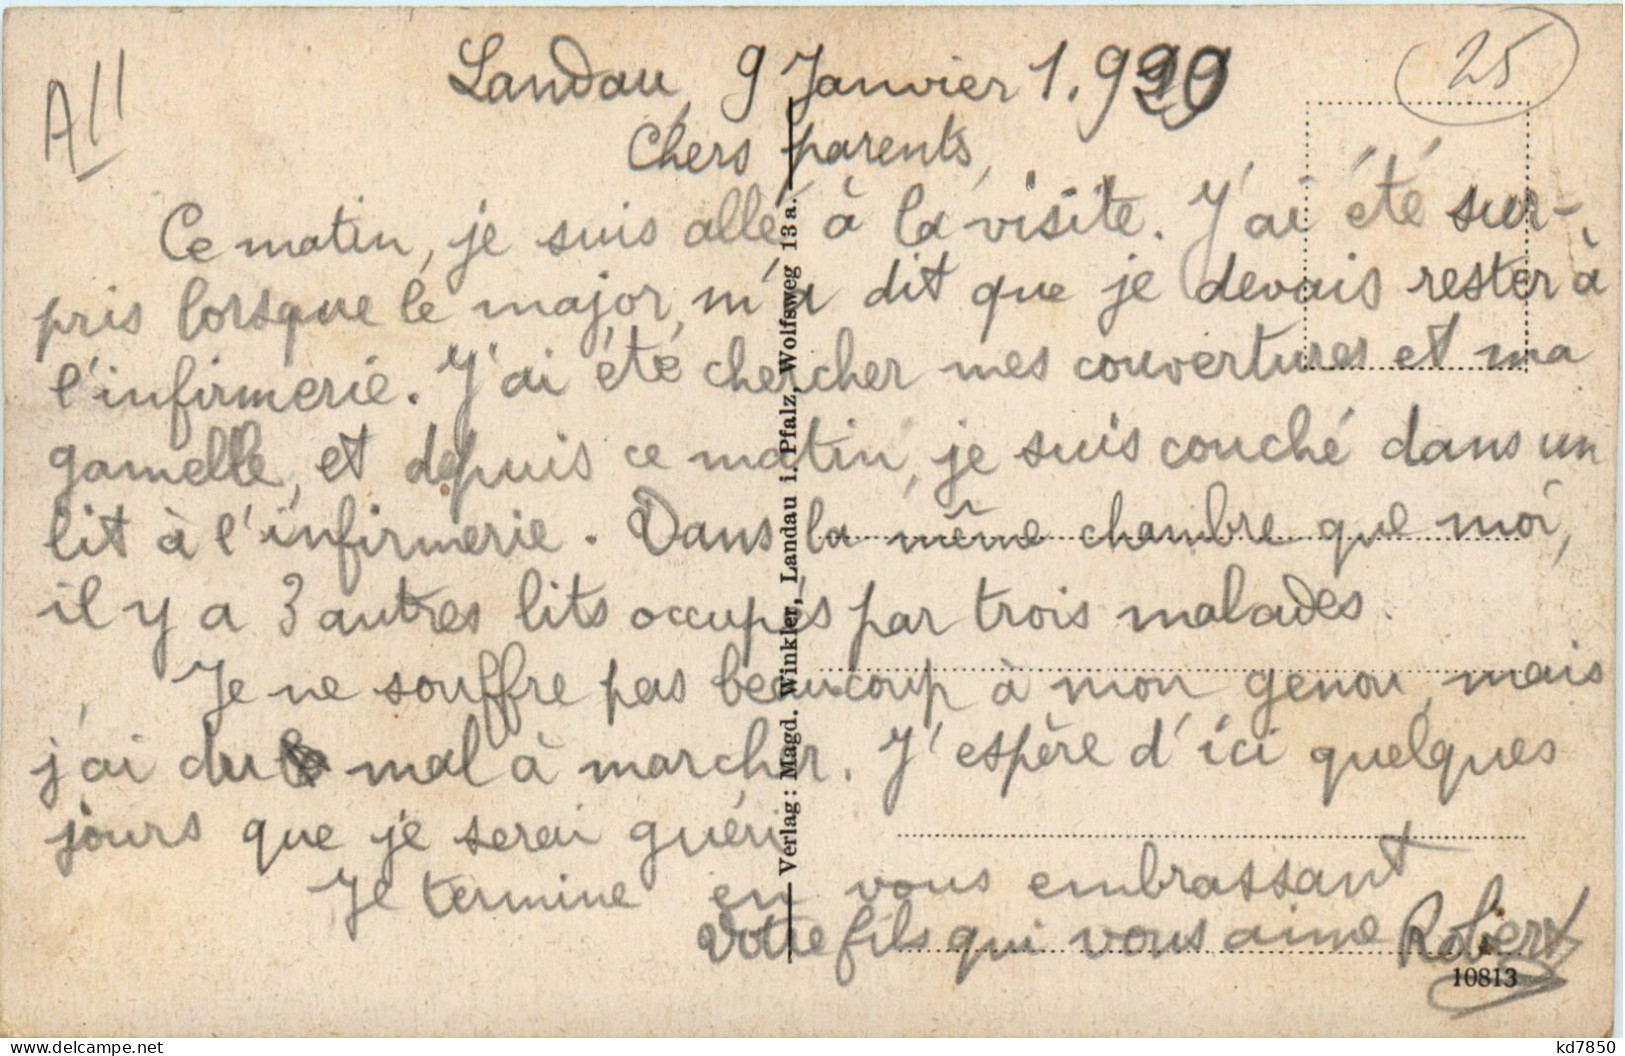 A11
25
Landau, 9 Janvier 1.920
Chers parents,
Ce matin, je suis allé à la visite. J'ai été sur-
pris lorsque le major, m'a dit que je devais rester à
l'infirmerie. J'ai été chercher mes couvertures et ma
gamelle, et depuis ce matin, je suis couché dans un
lit à l'infirmerie. Dans la même chambre que moi,
il y a 3 autres lits occupés par trois malades.
Je ne souffre pas beaucoup à mon genou, mais
j'ai du mal à marcher. J'espère d'ici quelques
jours que je serai guéri
Je termine en vous embrassant
Votre fils qui vous aime Robert
Verlag: Magd. Winkler, Landau i. Pfalz, Wolfsweg 13 a.
10813
kd7850